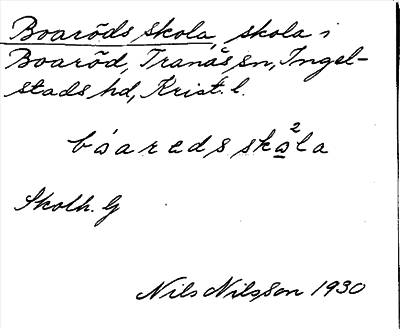 Boaröds skola, skola i
Boaröd, Tranås sn, Ingel-
stads hd, Krist. l.
bóaredssko̲²la
Skolh. G
Nils Nilsson 1930